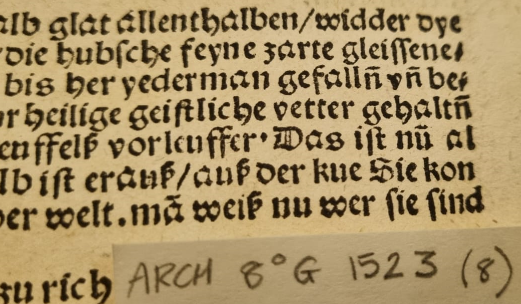 alb glat allenthalben/widder dye
die hubſche feyne zarte gleiſſene⸗
bis her yederman gefallñ vñ be⸗
heilige geiſtliche vetter gehaltñ
vorleuffer· Das iſt nũ al
lb iſt erauß/auß der kue Sie kon
er welt.mã weiß nu wer ſie ſind
zu rich
ARCH 8° G 1523 (8)